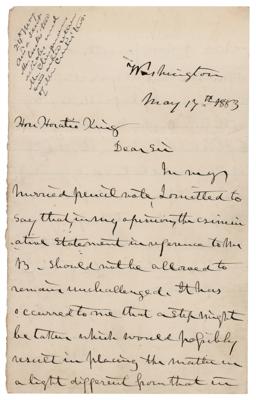 Washington
May 17th 1883
Hon Horatio King
Dear Sir
In my
hurried pencil note, I omitted to
say that, in my opinion, the
statement in reference to Mr
B— should not be allowed to
remain unchallenged. It has
occurred to me that a step might
be taken which would possibly
result in placing the matter in
a light different from that in